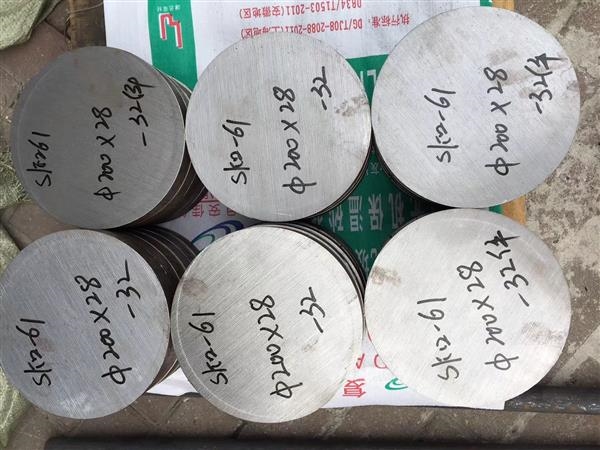 执行标准:
DG/TJ08-2088-2011(上海地区)
DB34/T1503-2011(安徽地区)
SKD-61
Φ200×28
-32
SKD-61
Φ200×28
-32
SKD-61
Φ200×28
SKD-61
Φ200×28
-32
SKD-61
Φ200×28
-32
SKD-61
Φ200×28
机保温砂